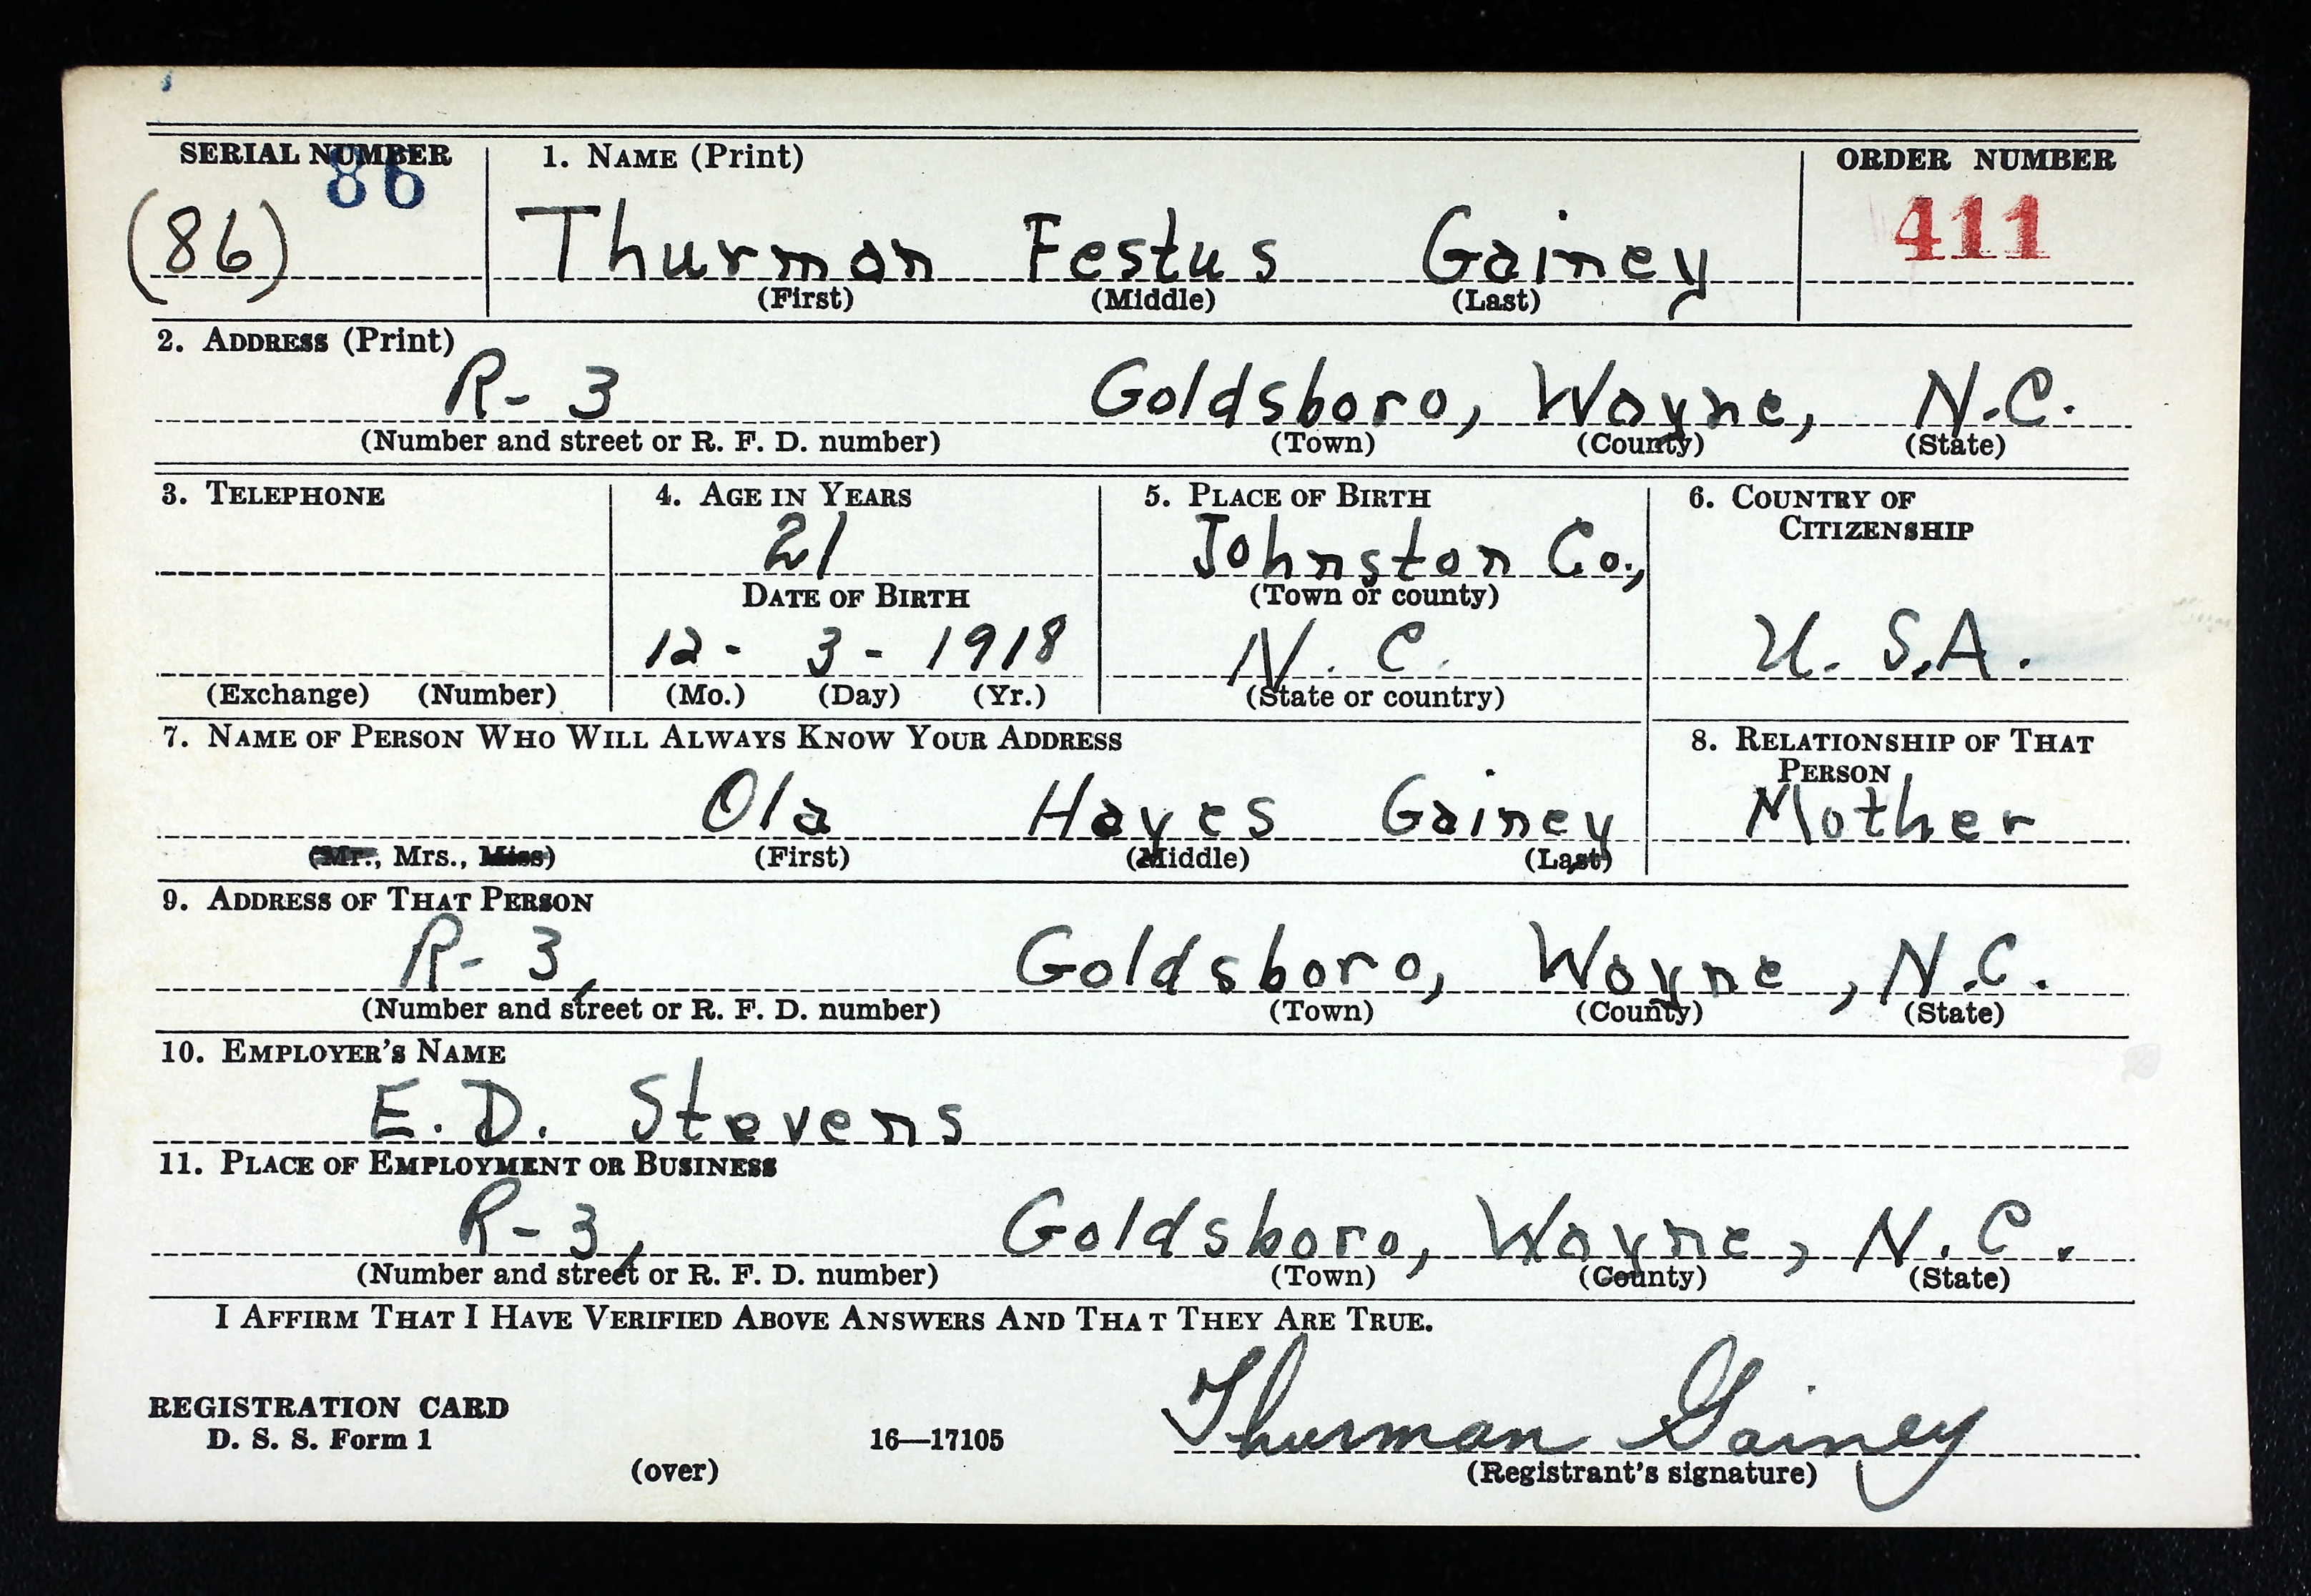 SERIAL NUMBER 1. NAME (Print) ORDER NUMBER
86
(86) Thurman Festus Gainey 411
(First) (Middle) (Last)
2. ADDRESS (Print)
R- 3 Goldsboro, Wayne, N.C.
(Number and street or R. F. D. number) (Town) (County) (State)
3. TELEPHONE 4. AGE IN YEARS 5. PLACE OF BIRTH 6. COUNTRY OF
CITIZENSHIP
21 Johnston Co.,
DATE OF BIRTH (Town or county)
12 - 3 - 1918 N. C. U. S.A.
(Exchange) (Number) (Mo.) (Day) (Yr.) (State or country)
7. NAME OF PERSON WHO WILL ALWAYS KNOW YOUR ADDRESS 8. RELATIONSHIP OF THAT
PERSON
Ola Hayes Gainey Mother
(Mr., Mrs., Miss) (First) (Middle) (Last)
9. ADDRESS OF THAT PERSON
R- 3, Goldsboro, Wayne, N.C.
(Number and street or R. F. D. number) (Town) (County) (State)
10. EMPLOYER'S NAME
E. D. Stevens
11. PLACE OF EMPLOYMENT OR BUSINESS
R- 3, Goldsboro, Wayne, N. C.
(Number and street or R. F. D. number) (Town) (County) (State)
I AFFIRM THAT I HAVE VERIFIED ABOVE ANSWERS AND THAT THEY ARE TRUE.
Thurman Gainey
REGISTRATION CARD
D. S. S. Form 1 16—17105
(over) (Registrant's signature)